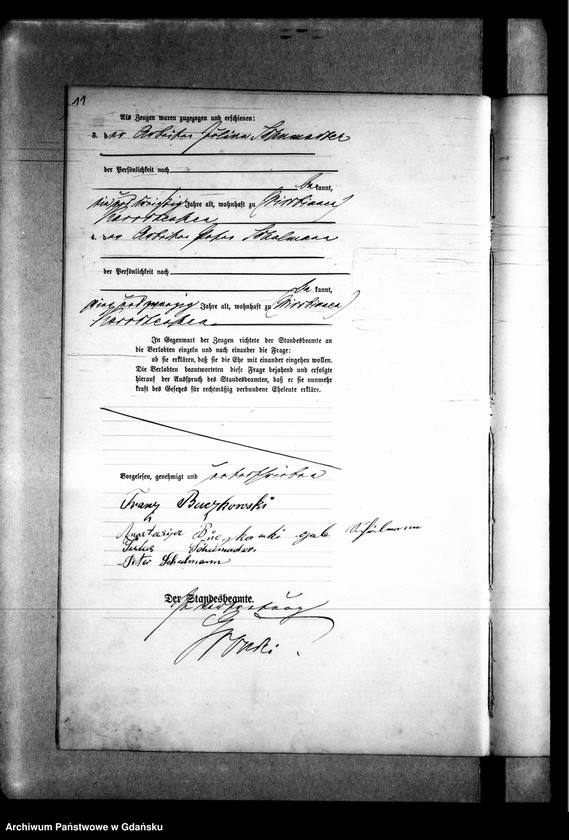 11
Als Zeugen waren zugezogen und erschienen:
3. der Arbeiter
der Persönlichkeit nach
be kannt,
Jahre alt, wohnhaft zu
4. der Arbeiter Peter
der Persönlichkeit nach
be kannt,
vier und zwanzig Jahre alt, wohnhaft zu
In Gegenwart der Zeugen richtete der Standesbeamte an
die Verlobten einzeln und nach einander die Frage:
ob sie erklären, daß sie die Ehe mit einander eingehen wollen.
Die Verlobten beantworteten diese Frage bejahend und erfolgte
hierauf der Ausspruch des Standesbeamten, daß er sie nunmehr
kraft des Gesetzes für rechtmäßig verbundene Eheleute erkläre.
Vorgelesen, genehmigt und unterschrieben
Franz Buczkowski
Schulmann
Julius Schumacher
Peter Schulmann
Der Standesbeamte.
In Vertretung
Archiwum Państwowe w Gdańsku